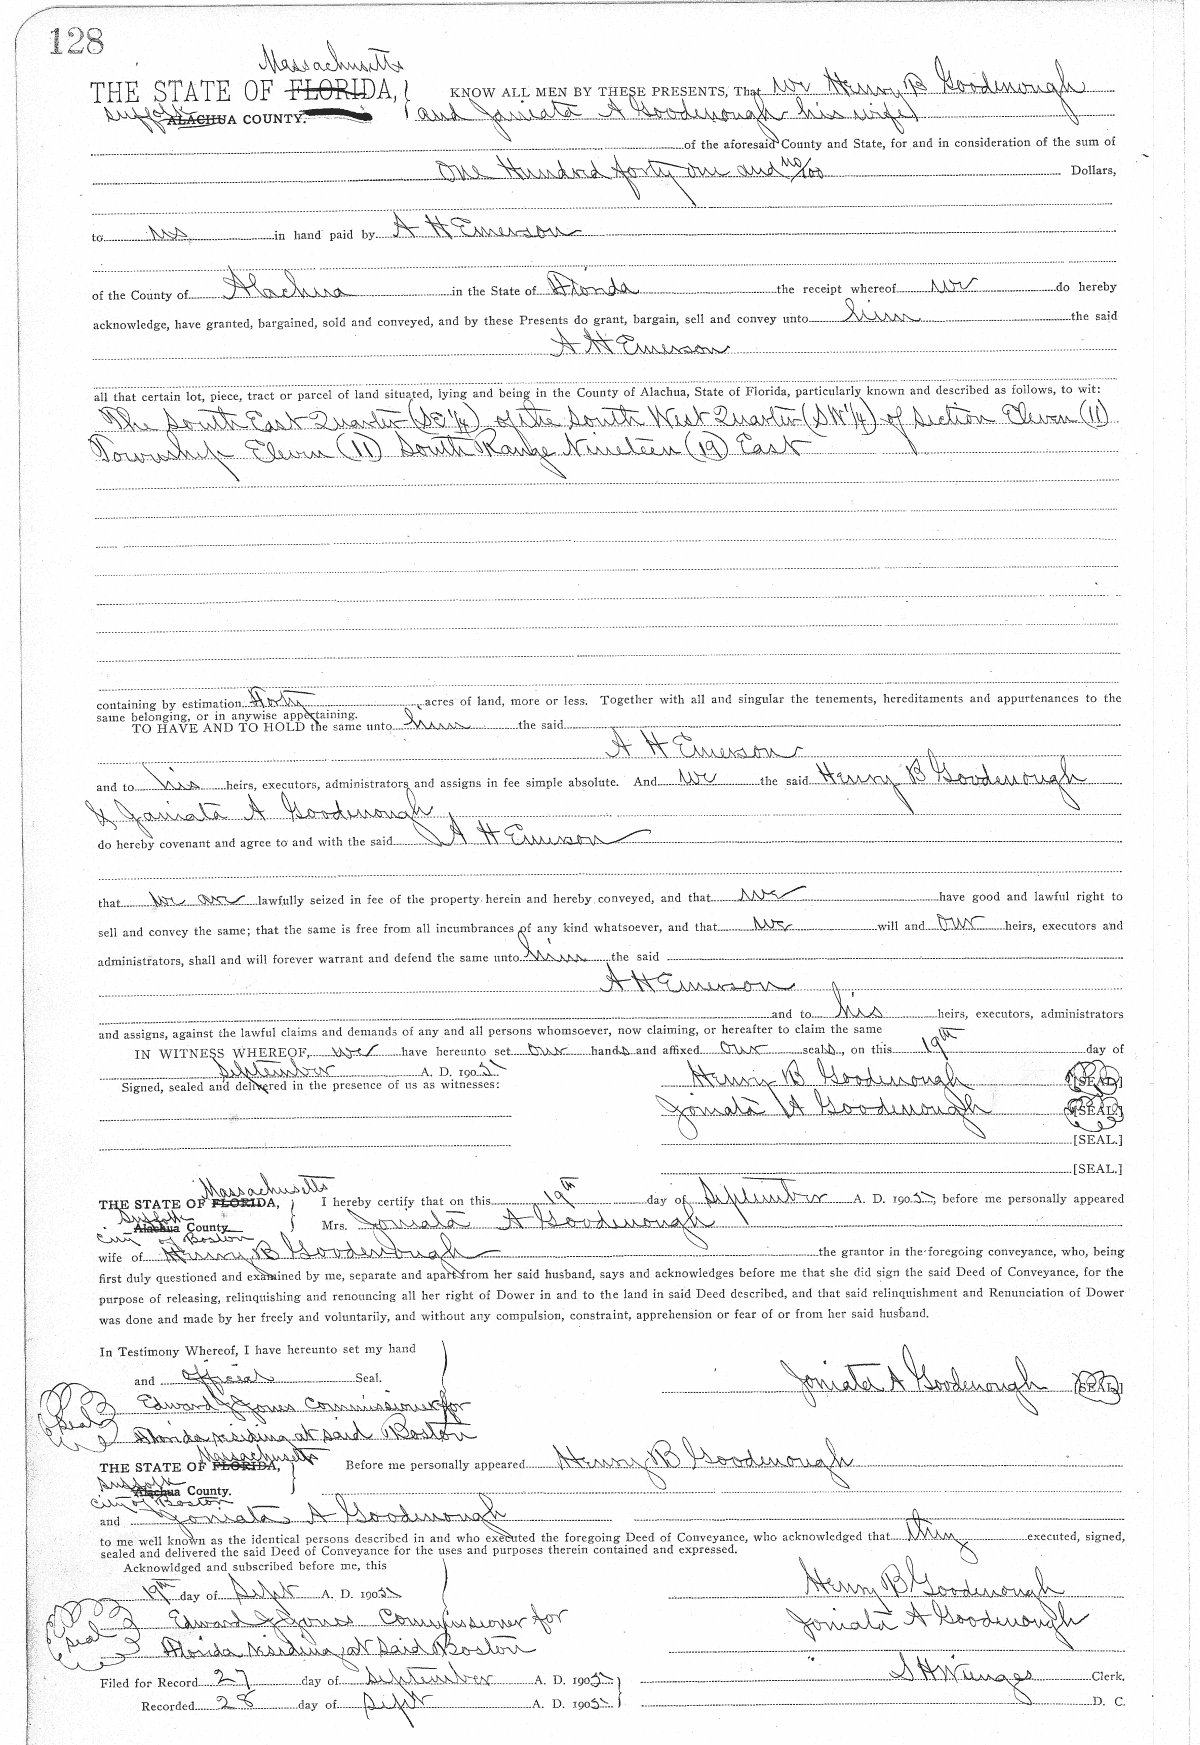 128
Massachusetts
THE STATE OF FLORIDA, KNOW ALL MEN BY THESE PRESENTS, That we Henry B Goodenough
Suffolk ALACHUA COUNTY. and Joniata A Goodenough his wife
of the aforesaid County and State, for and in consideration of the sum of
One Hundred forty one and no/100 Dollars,
to us in hand paid by A H Emerson
of the County of Alachua in the State of Florida the receipt whereof we do hereby
acknowledge, have granted, bargained, sold and conveyed, and by these Presents do grant, bargain, sell and convey unto him the said
A H Emerson
all that certain lot, piece, tract or parcel of land situated, lying and being in the County of Alachua, State of Florida, particularly known and described as follows, to wit:
The South East Quarter (SE 1/4) of the South West Quarter (SW 1/4) of Section Eleven (11)
Township Eleven (11) South Range Nineteen (19) East
containing by estimation Forty acres of land, more or less. Together with all and singular the tenements, hereditaments and appurtenances to the
same belonging, or in anywise appertaining.
TO HAVE AND TO HOLD the same unto him the said
A H Emerson
and to his heirs, executors, administrators and assigns in fee simple absolute. And we the said Henry B Goodenough
& Joniata A Goodenough
do hereby covenant and agree to and with the said A H Emerson
that we are lawfully seized in fee of the property herein and hereby conveyed, and that we have good and lawful right to
sell and convey the same; that the same is free from all incumbrances of any kind whatsoever, and that we will and our heirs, executors and
administrators, shall and will forever warrant and defend the same unto him the said
A H Emerson
and to his heirs, executors, administrators
and assigns, against the lawful claims and demands of any and all persons whomsoever, now claiming, or hereafter to claim the same
IN WITNESS WHEREOF, we have hereunto set our hands and affixed our seals, on this 19th day of
September A. D. 1905
Signed, sealed and delivered in the presence of us as witnesses: Henry B Goodenough [SEAL]
Joniata A Goodenough [SEAL]
[SEAL.]
[SEAL.]
Massachusetts
THE STATE OF FLORIDA, I hereby certify that on this 19th day of September A. D. 1905 before me personally appeared
Suffolk
Alachua County. Mrs. Joniata A Goodenough
City of Boston
wife of Henry B Goodenough the grantor in the foregoing conveyance, who, being
first duly questioned and examined by me, separate and apart from her said husband, says and acknowledges before me that she did sign the said Deed of Conveyance, for the
purpose of releasing, relinquishing and renouncing all her right of Dower in and to the land in said Deed described, and that said relinquishment and Renunciation of Dower
was done and made by her freely and voluntarily, and without any compulsion, constraint, apprehension or fear of or from her said husband.
In Testimony Whereof, I have hereunto set my hand
and official Seal. Joniata A Goodenough [SEAL]
Seal Edward J Jones Commissioner for
Florida residing at said Boston
Massachusetts
THE STATE OF FLORIDA, Before me personally appeared Henry B Goodenough
Suffolk
Alachua County.
City of Boston
and Joniata A Goodenough
to me well known as the identical persons described in and who executed the foregoing Deed of Conveyance, who acknowledged that they executed, signed,
sealed and delivered the said Deed of Conveyance for the uses and purposes therein contained and expressed.
Acknowldged and subscribed before me, this
19th day of Sept A. D. 1905 Henry B Goodenough
Seal Edward J Jones Commissioner for Joniata A Goodenough
Florida residing at said Boston
Filed for Record 27 day of September A. D. 1905 S H Wienges Clerk.
Recorded 28 day of Sept A. D. 1905 D. C.